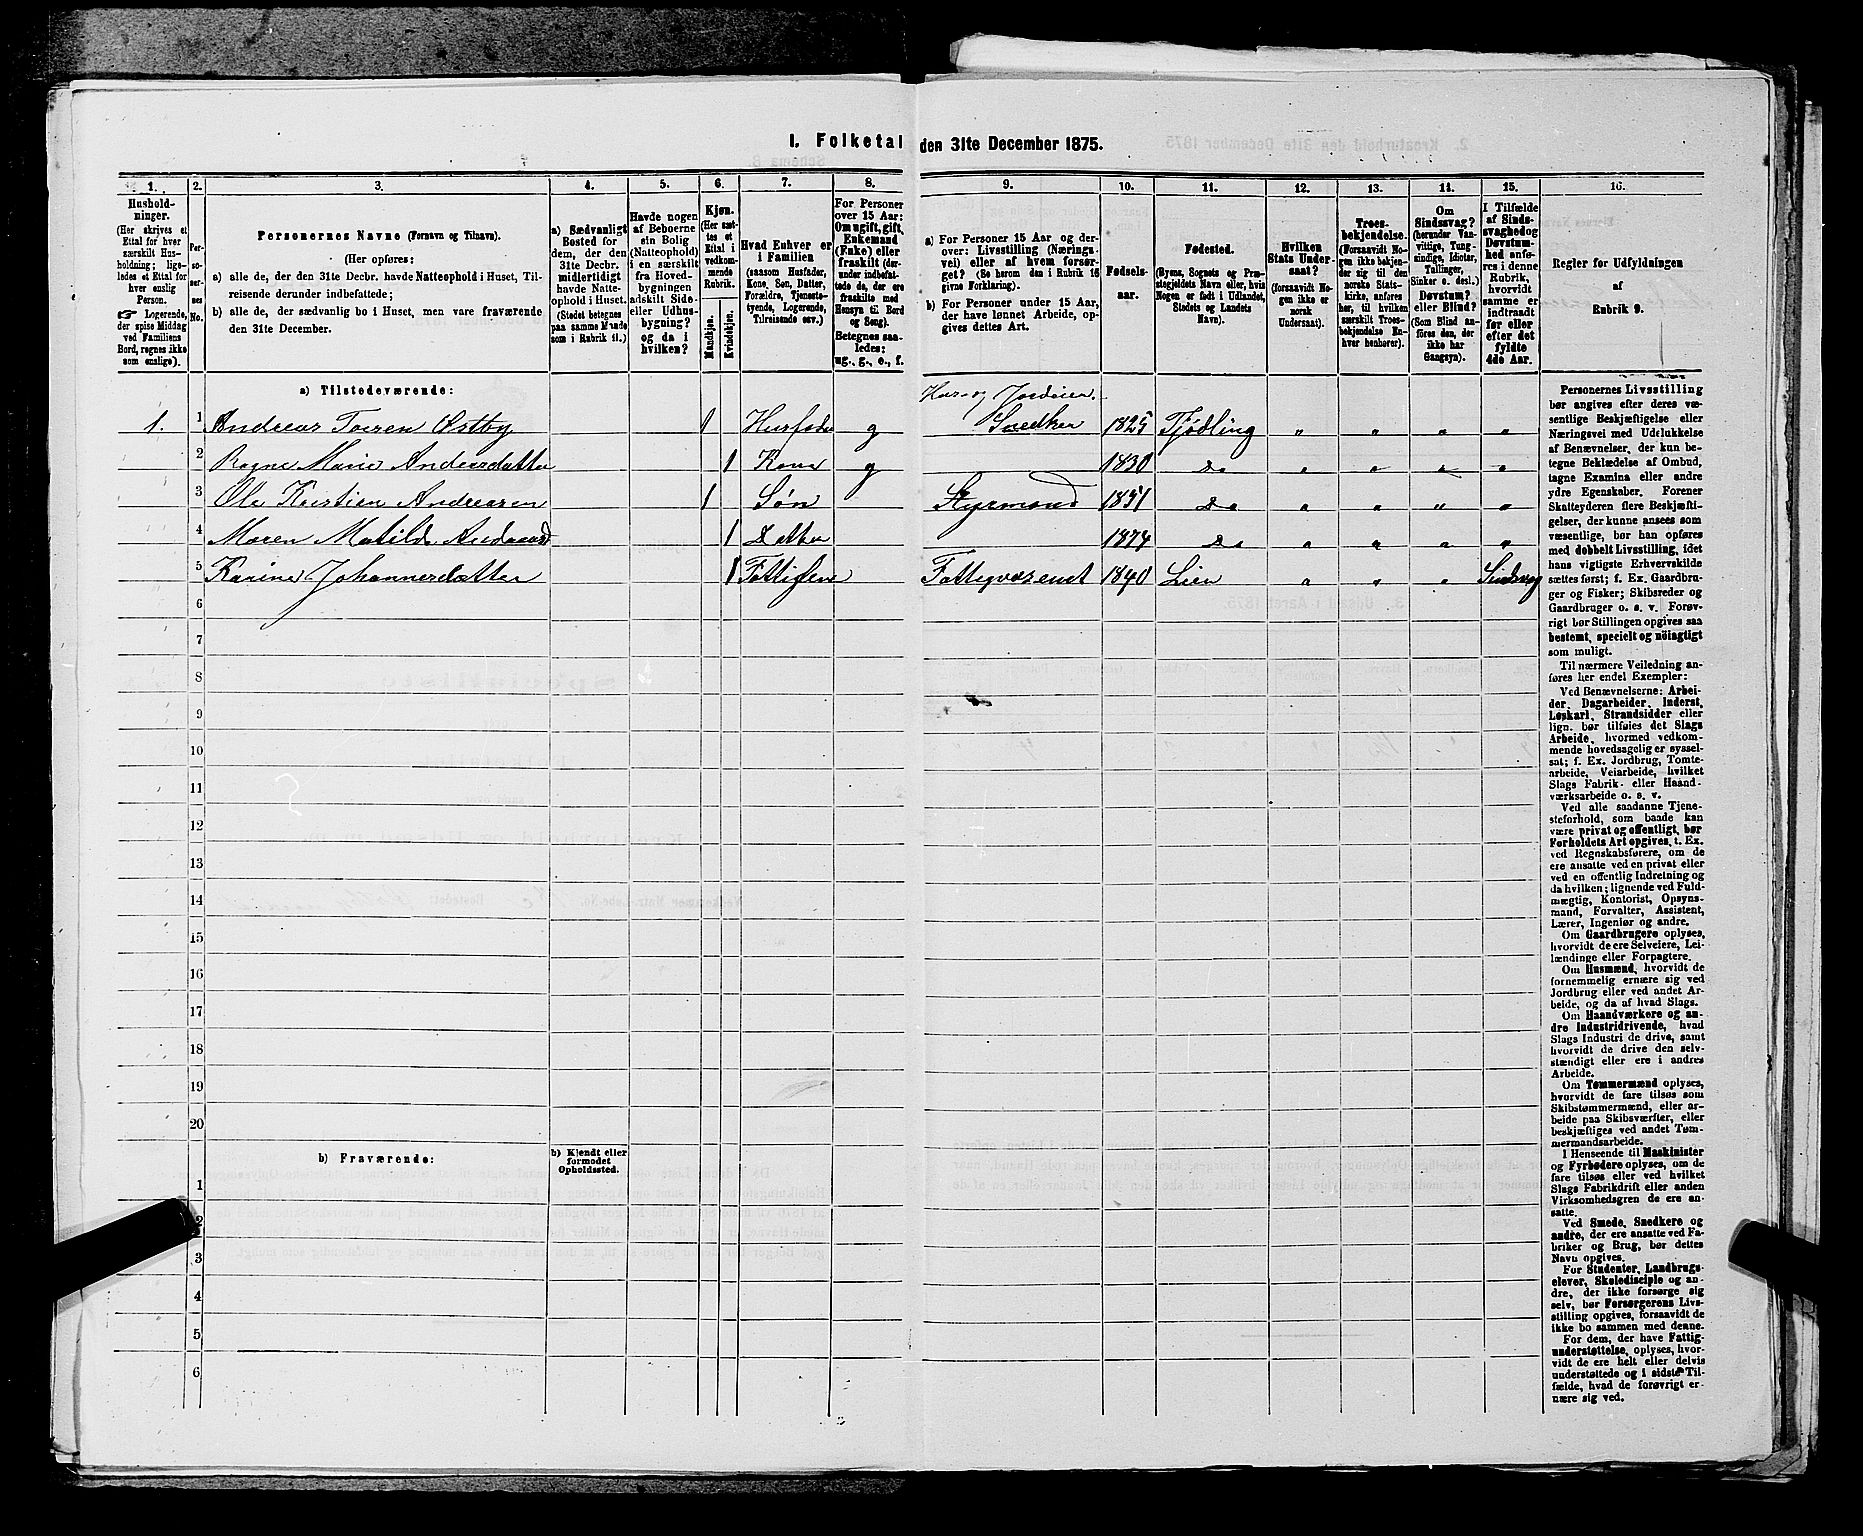 I. Folketal den 31te December 1875.
1. 2. 3. 4. 5. 6. 7. 8. 9. 10. 11. 12. 13. 14. 15. 16.
Husholdninger.
(Her skrives et
Ettal for hver
særskilt Husholdning;
ligeledes et Ettal for
hver enslig
Person.
☞ Logerende,
der spise Middag
ved Familiens
Bord, regnes ikke
som enslige).
Personernes No.
Personernes Navne (Fornavn og Tilnavn).
(Her opføres:
a) alle de, der den 31te Decbr. havde Natteophold i Huset, Tilreisende
derunder indbefattede;
b) alle de, der sædvanlig bo i Huset, men vare fraværende
den 31te December.
a) Sædvanligt
Bosted for
dem, der den
31te Decbr.
midlertidigt
havde Natteophold
i Huset.
(Stedet betegnes
paa samme Maade
som i Rubrik 11.)
Havde nogen
af Beboerne
sin Bolig
(Natteophold)
i en særskilt
fra Hovedbygningen
adskilt Side-
eller Udhusbygning?
og da i
hvilken?
Kjøn.
(Her sættes
et
Ettal i
vedkommende
Rubrik.
Mandkjøn.
Kvindekjøn.
Hvad Enhver er
i Familien
(saasom Husfader,
Kone, Søn, Datter,
Forældre, Tjenestetyende,
Logerende,
Tilreisende osv.)
For Personer
over 15 Aar:
Om ugift, gift,
Enkemand
(Enke) eller
fraskilt (derunder
indbefattede
de, der ere
fraskilte med
Hensyn til Bord
og Seng).
Betegnes saaledes:
ug., g., e., f.
a) For Personer 15 Aar og derover:
Livsstilling (Næringsvei)
eller af hvem forsørget?
(Se herom den i Rubrik 16
givne Forklaring).
b) For Personer under 15 Aar,
der have lønnet Arbeide, opgives
dettes Art.
Fødselsaar.
Fødested.
(Byens, Sognets og Præstegjeldets
Navn eller, hvis
Nogen er født i Udlandet,
Stedets og Landets
Navn).
Hvilken
Stats Undersaat?
(forsaavidt Nogen
ikke er
norsk
Undersaat).
Troesbekjendelse.
(Forsaavidt Nogen
ikke bekjender
sig til den
norske Statskirke,
anføres
her, til hvilken
særskilt Troesbekjendelse
Enhver
henhører).
Om
Sindssvag?
(herunder Vanvittige,
Tungsindige,
Idioter,
Tullinger,
Sinker o. desl.)
Døvstum?
eller Blind?
(Som Blind anføres
den, der
ikke har
Gangsyn).
I Tilfælde
af Sindssvaghed
og
Døvstumhed
anføres
i denne
Rubrik,
hvorvidt
samme er
indtraadt
før eller
efter det
fyldte
4de Aar.
Regler for Udfyldningen
af
Rubrik 9.
a) Tilstedeværende:
Hus- og Jordeier.
1. 1 Andreas Toresen Østby 1 Husfader g Snedker 1825 Tjødling " " " "
2 Ragne Marie Andersdatter 1 Kone g 1830 Do " " " "
3 Ole Kristian Andreasen 1 Søn Styrmand 1851 Do " " " "
4 Maren Matilde 1 Datter 1874 Do " " " "
5 Karine Johannesdatter 1 Fattigvæsenet 1840 Lien " " "
6
7
8
9
10
11
12
13
14
15
16
17
18
19
20
b) Fraværende:
b) Kjendt eller
formodet
Opholdssted.
1
2
3
4
5
6
Personernes Livsstilling
bør angives efter deres væsentlige
Beskjæftigelse eller
Næringsvei med Udelukkelse
af Benævnelser, der kun betegne
Beklædelse af Ombud,
tagne Examina eller andre
ydre Egenskaber. Forener
Skatteyderen flere Beskjæftigelser,
der kunne ansees som
væsentlige, bør han opføres
med dobbelt Livsstilling, idet
hans vigtigste Erhvervskilde
sættes først; f. Ex. Gaardbruger
og Fisker; Skibsreder og
Gaardbruger o. s. v. Forøvrigt
bør Stillingen opgives saa
bestemt, specielt og nøiagtigt
som muligt.
Til nærmere Veiledning anføres
her endel Exempler:
Ved Benævnelserne: Arbeider,
Dagarbeider, Inderst,
Løskarl, Strandsidder eller
lign. bør tilføies det Slags
Arbeide, hvormed vedkommende
hovedsagelig er sysselsat;
f. Ex. Jordbrug, Tomtearbeide,
Veiarbeide, hvilket
Slags Fabrik- eller Haandværksarbeide
o. s. v.
Ved alle saadanne Tjenesteforhold,
som baade kan
være privat og offentligt, bør
Forholdets Art opgives, t. Ex.
ved Regnskabsførere, om de
ere ansatte ved en privat eller
ved en offentlig Indretning og
da hvilken; lignende ved Fuldmægtig,
Kontorist, Opsynsmand,
Forvalter, Assistent,
Lærer, Ingeniør og andre.
Om Gaardbrugere oplyses,
hvorvidt de ere Selveiere, Leilændinge
eller Forpagtere.
Om Husmænd, hvorvidt de
fornemmelig ernære sig ved
Jordbrug eller ved andet Arbeide,
og da af hvad Slags.
Om Haandværkere og andre
Industridrivende, hvad
Slags Industri de drive, samt
hvorvidt de drive den selvstændigt
eller ere i andres
Arbeide.
Om Tømmermænd oplyses,
hvorvidt de fare tilsøs som
Skibstømmermænd, eller arbeide
paa Skibsværfter, eller
beskjæftiges ved andet Tømmermandsarbeide.
I Henseende til Maskinister
og Fyrbødere oplyses, om de
fare tilsøs eller ved hvilket
Slags Fabrikdrift eller anden
Virksomhedsgren de ere ansatte.
Ved Smede, Snedkere og
andre, der ere ansatte ved Fabriker
og Brug, bør dettes
Navn opgives.
For Studenter, Landbrugselever,
Skoledisciple og andre,
der ikke forsørge sig
selv, bør Forsørgerens Livsstilling
opgives, forsaavidt de
ikke bo sammen med denne.
For dem, der have Fattigunderstøttelse,
oplyses, hvorvidt
de ere helt eller delvis
understøttede og i sidste Tilfælde,
hvad de forøvrigt ernære
sig ved.